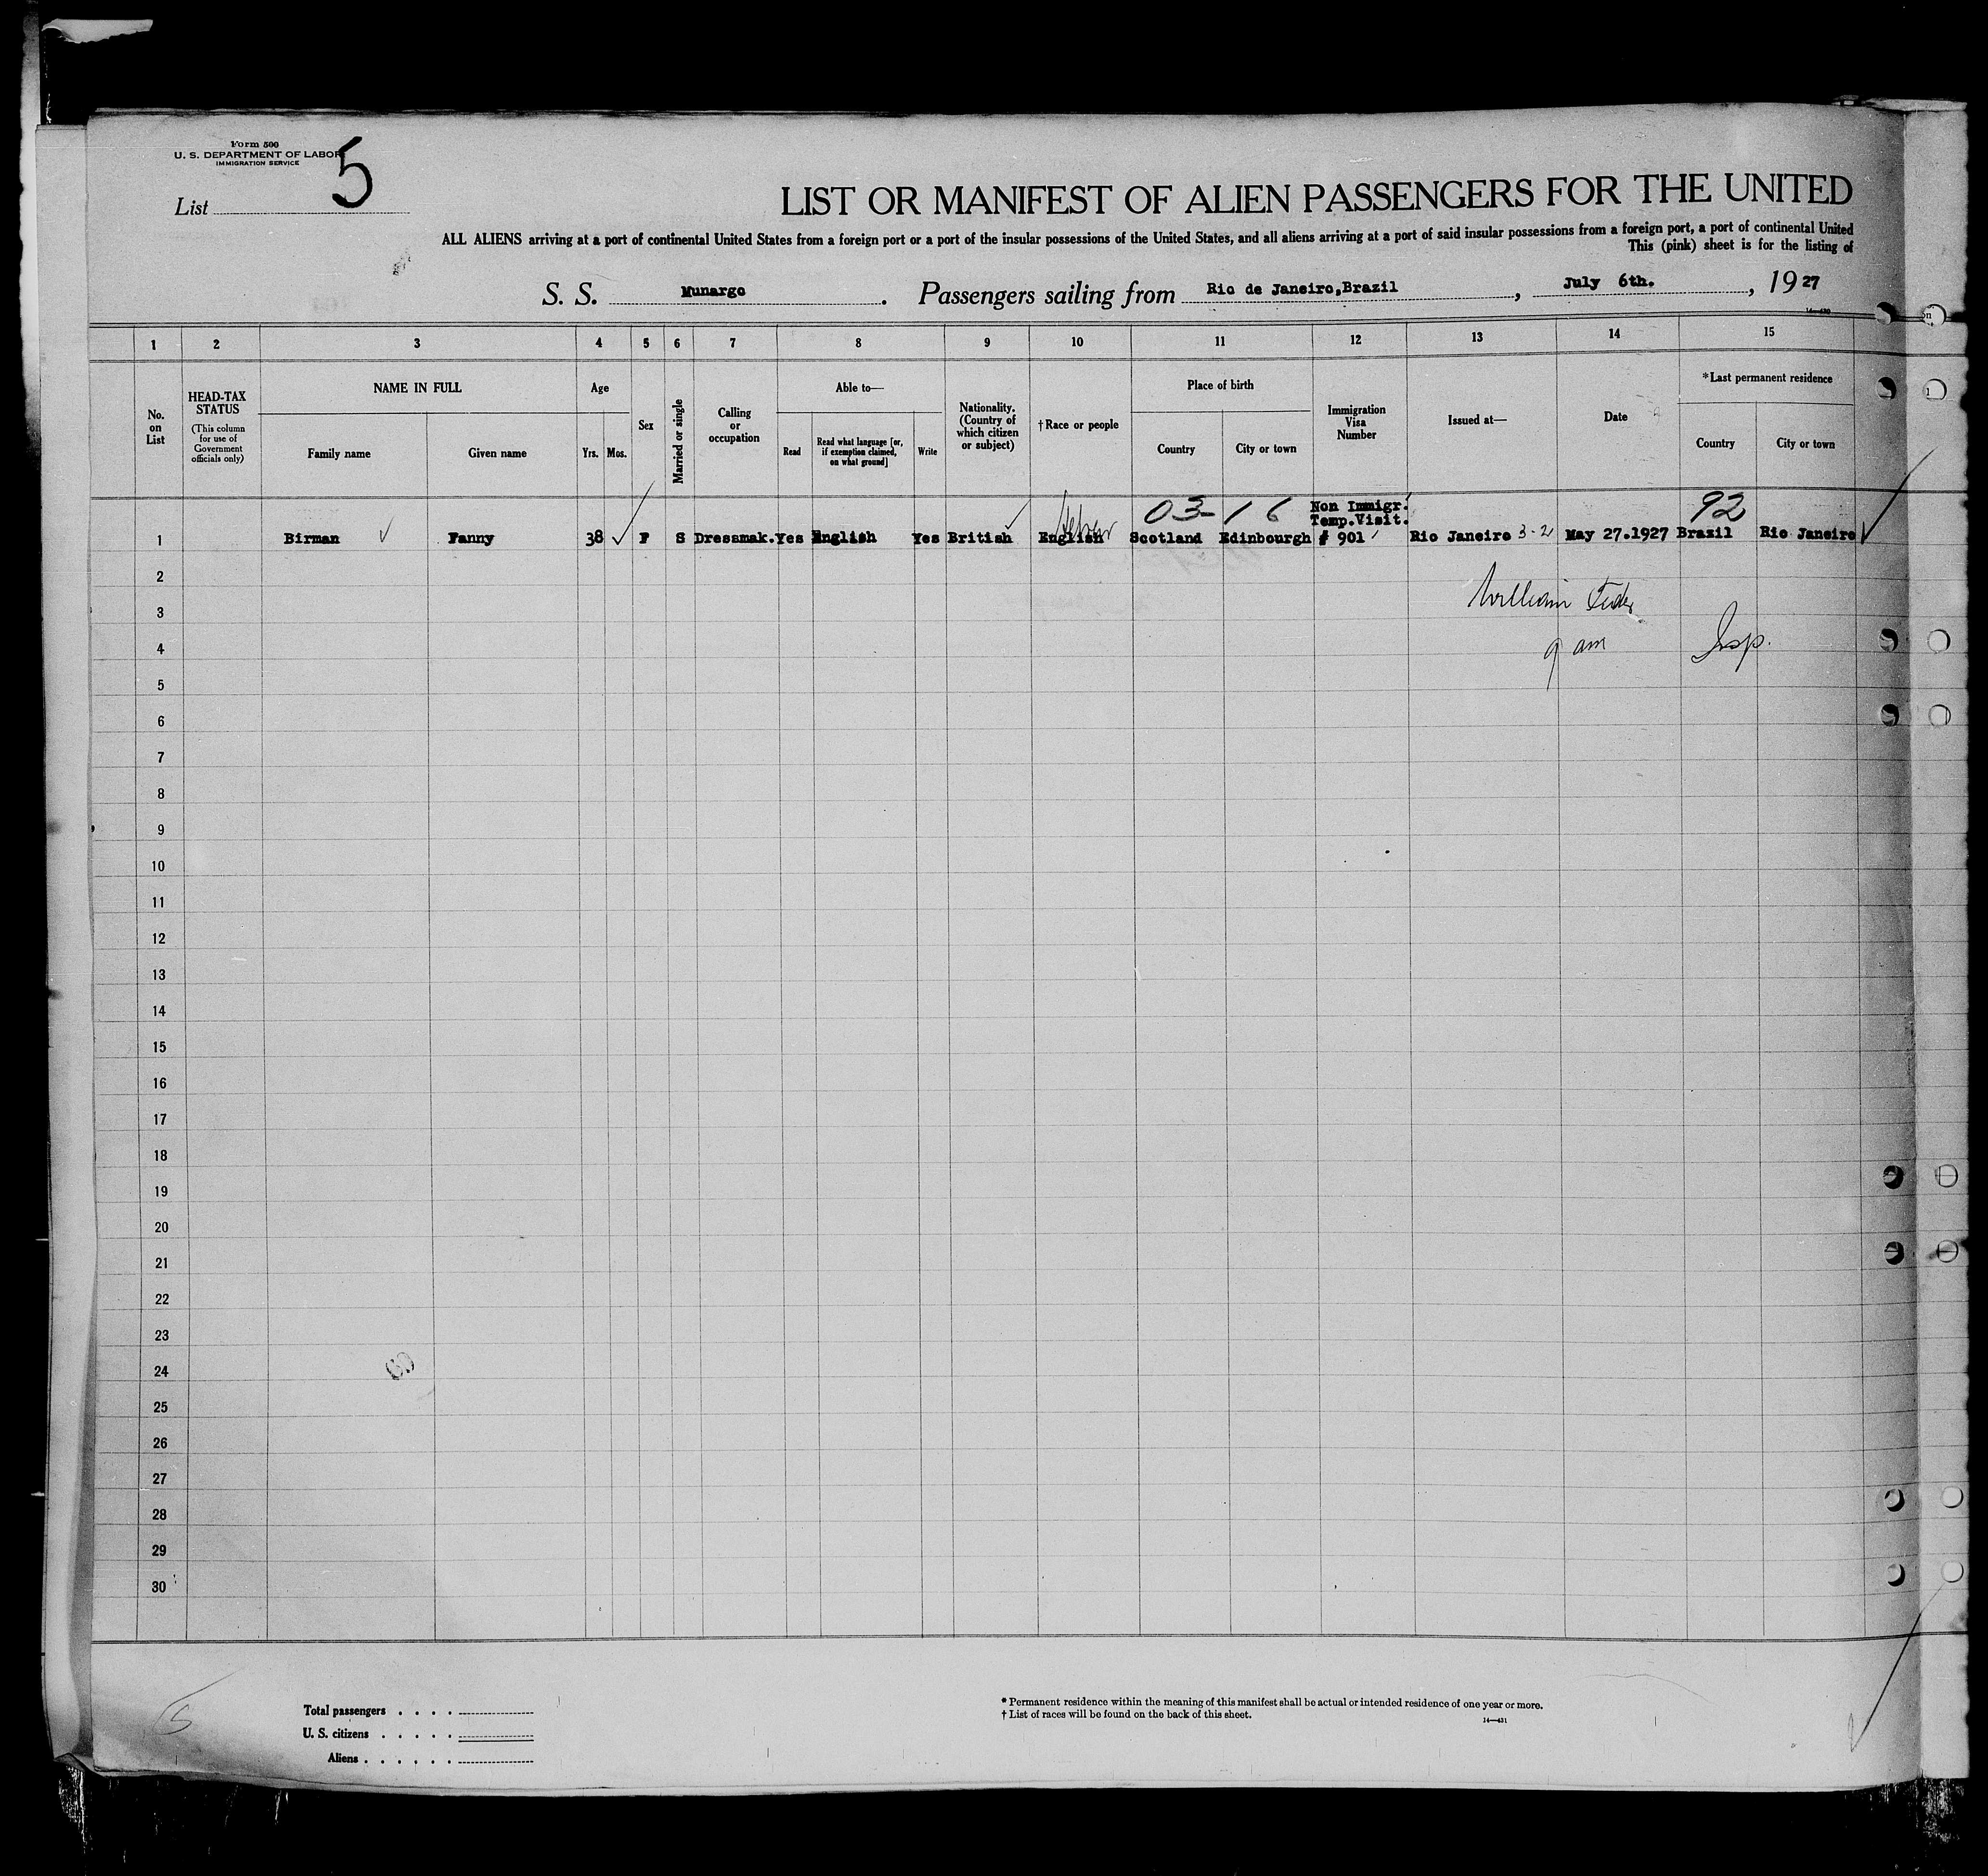 Form 500
U. S. DEPARTMENT OF LABOR
IMMIGRATION SERVICE
List 5
LIST OR MANIFEST OF ALIEN PASSENGERS FOR THE UNITED
ALL ALIENS arriving at a port of continental United States from a foreign port or a port of the insular possessions of the United States, and all aliens arriving at a port of said insular possessions from a foreign port, a port of continental United
This (pink) sheet is for the listing of
S. S. Munargo. Passengers sailing from Rio de Janeiro,Brazil, July 6th., 1927
14—430
1 2 3 4 5 6 7 8 9 10 11 12 13 14 15
No. on List
HEAD-TAX STATUS (This column for use of Government officials only)
NAME IN FULL
Family name Given name
Age
Yrs. Mos.
Sex
Married or single
Calling or occupation
Able to—
Read Read what language [or, if exemption claimed, on what ground] Write
Nationality. (Country of which citizen or subject)
† Race or people
Place of birth
Country City or town
Immigration Visa Number
Issued at—
Date
* Last permanent residence
Country City or town
03-16 Non Immigr. 92
Temp.Visit.
Hebrew
1 Birman Fanny 38 F S Dressmak. Yes English Yes British English Scotland Edinbourgh # 901 Rio Janeiro 3-2 May 27.1927 Brazil Rio Janeiro
2
William
3
4 9 am Insp.
5
6
7
8
9
10
11
12
13
14
15
16
17
18
19
20
21
22
23
24
25
26
27
28
29
30
Total passengers . . . .
U. S. citizens . . . . .
Aliens . . . . . .
* Permanent residence within the meaning of this manifest shall be actual or intended residence of one year or more.
† List of races will be found on the back of this sheet.
14—431